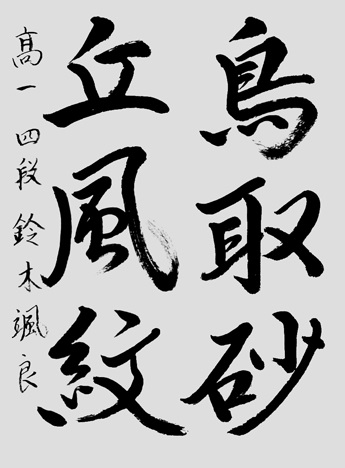 鳥取砂
丘風紋
高一 四段 鈴木颯良